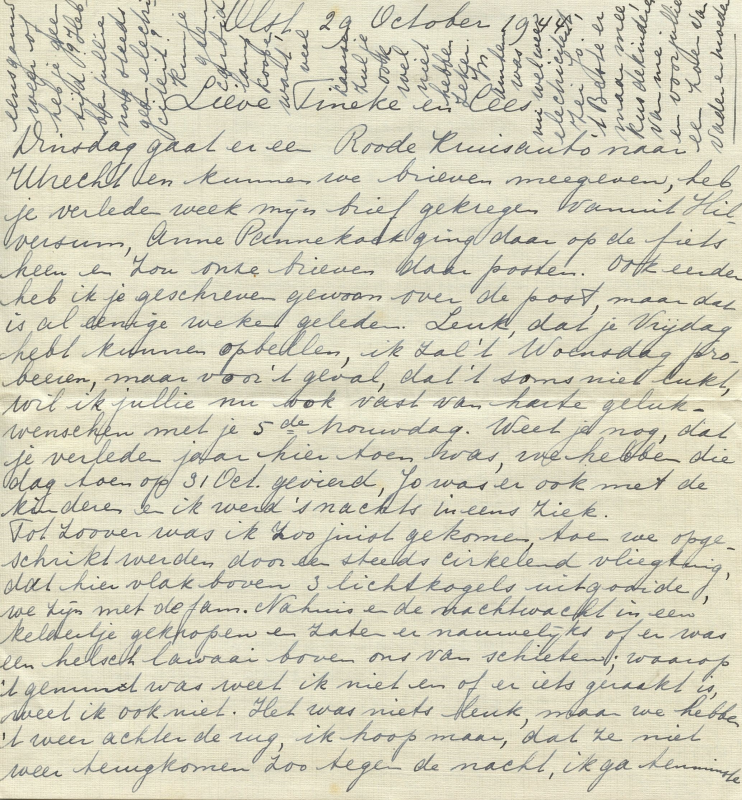 Olst, 29 October 1944
Lieve Tineke en Cees
Dinsdag gaat er een Roode Kruisauto naar
Utrecht en kunnen we brieven meegeven, heb
je verleden week mijn brief gekregen vanuit Hil-
versum, Anne Pannekoek ging daar op de fiets
heen en zou onze brieven daar posten. Ook eerder
heb ik je geschreven gewoon over de post, maar dat
is al eenige weken geleden. Leuk, dat je Vrijdag
hebt kunnen opbellen, ik zal 't Woensdag pro-
beeren, maar voor 't geval, dat 't soms niet lukt,
wil ik jullie nu ook vast van harte geluk-
wenschen met je 5de trouwdag. Weet je nog, dat
je verleden jaar hier toen was, we hebben die
dag toen op 31 Oct. gevierd, Jo was er ook met de
kinderen en ik werd 's nachts ineens ziek.
Tot zoover was ik zoo juist gekomen, toen we opge-
schrikt werden door een steeds cirkelend vliegtuig,
dat hier vlak boven 3 lichtkogels uitgooide,
we zijn met de fam. Nahuis en de nachtwacht in een
keldertje gekropen en zaten er nauwelijks of er was
een helsch lawaai boven ons van schieten; waarop
't gemunt was weet ik niet en of er iets geraakt is,
weet ik ook niet. Het was niets leuk, maar we hebben
't weer achter de rug, ik hoop maar, dat ze niet
weer terugkomen zoo tegen de nacht, ik ga tenminste
eens gauw
weer of
heb je geen
tijd? Heb-
ben jullie
nog steeds
geen electri-
citeit?
kun je
koopen
want veel
zul je
ook
wel
niet
hebben
zeker. In
was
nu wel weer
electriciteit,
zei Jo,
't Beste er
maar mee
kus de kinders
van me
en voor jullie
een zoen van
Vader en moeder